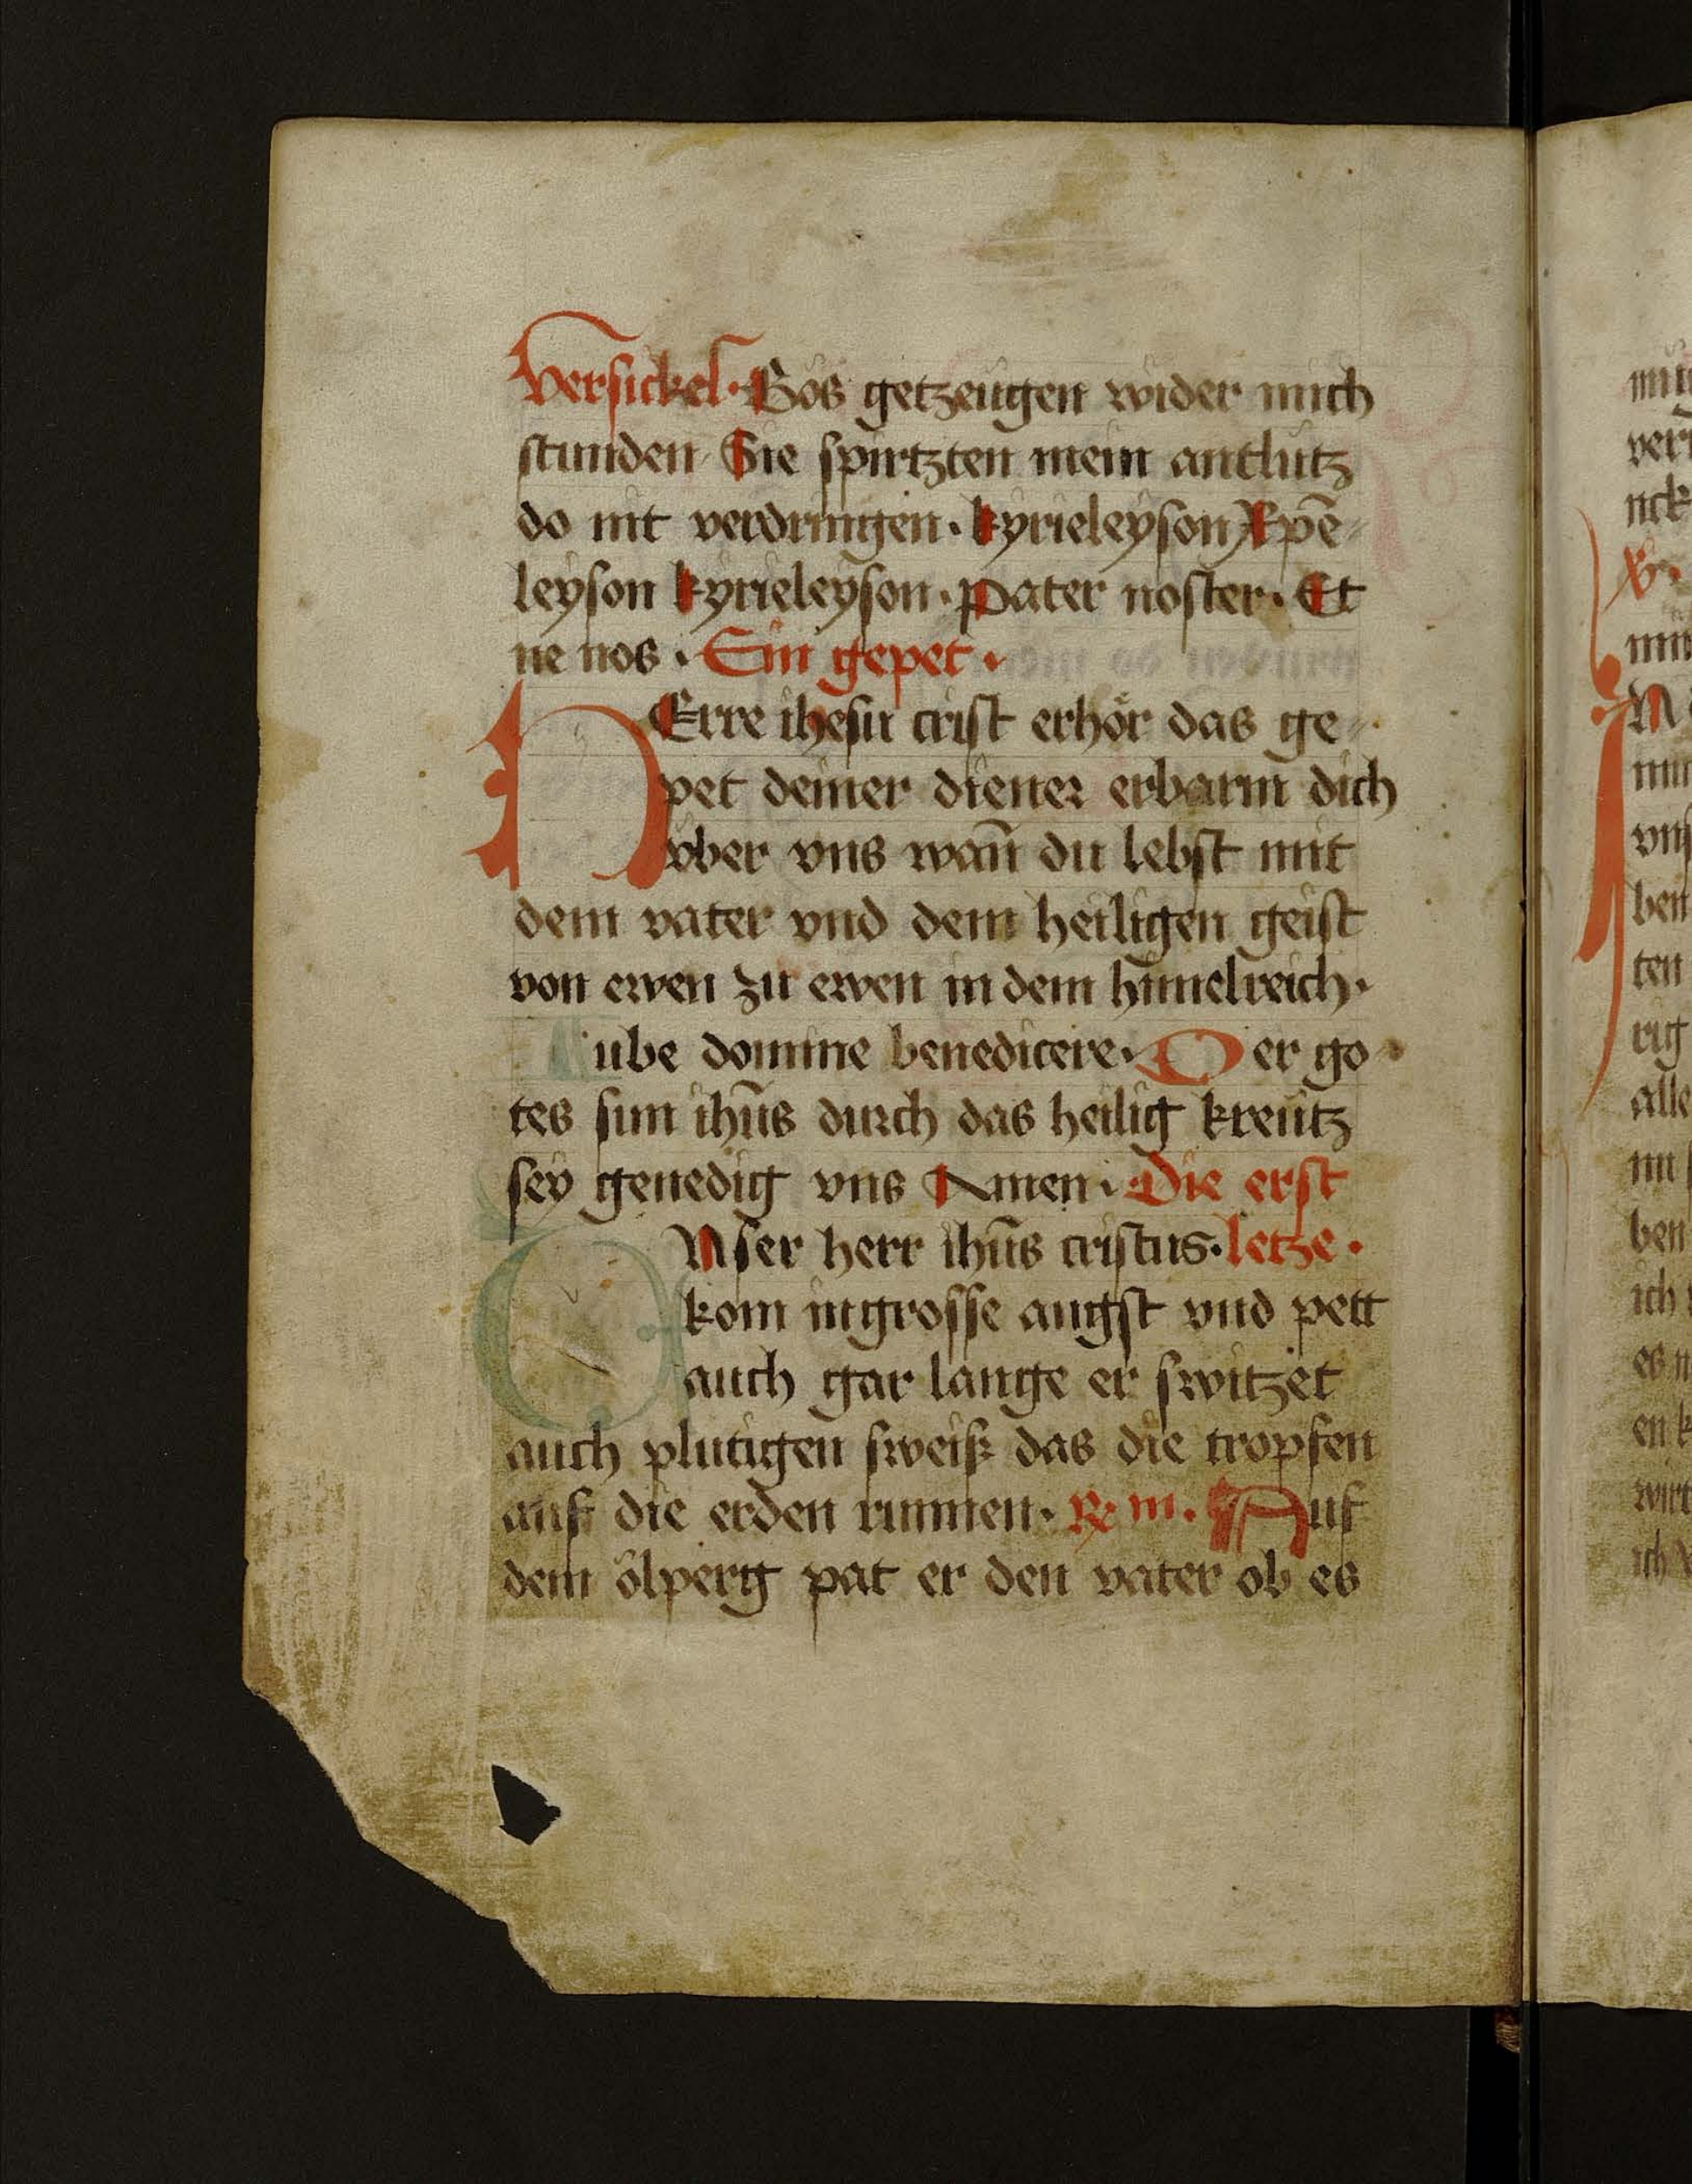 Versickel · Bös getzeügen wider mich
stunden Sie spirtzten mein antlütz
do nit verdringen · kyrieleyson Xp̄e
leyson kyrieleyson · Pater noster · Et
ne nos · Ein gepet ·
HErre ihesu crist erhör das ge
pet deiner diener erbarm dich
vber vns wan̄ du lebst mit
dem vater vnd dem heiligen geist
von ewen zu ewen in dem himelreich ·
Iube domine benedicere · Der go
tes sun ihūs durch das heilig kreütz
sey genedig vns Amen · Die erst
VNser herr ihūs cristus · letze ·
kom in grosse angst vnd pett
auch gar lange er switzet
auch plutigen sweiß das die tropfen
auf die erden runnen · R m · Auf
dem ölperg pat er den vater ob es